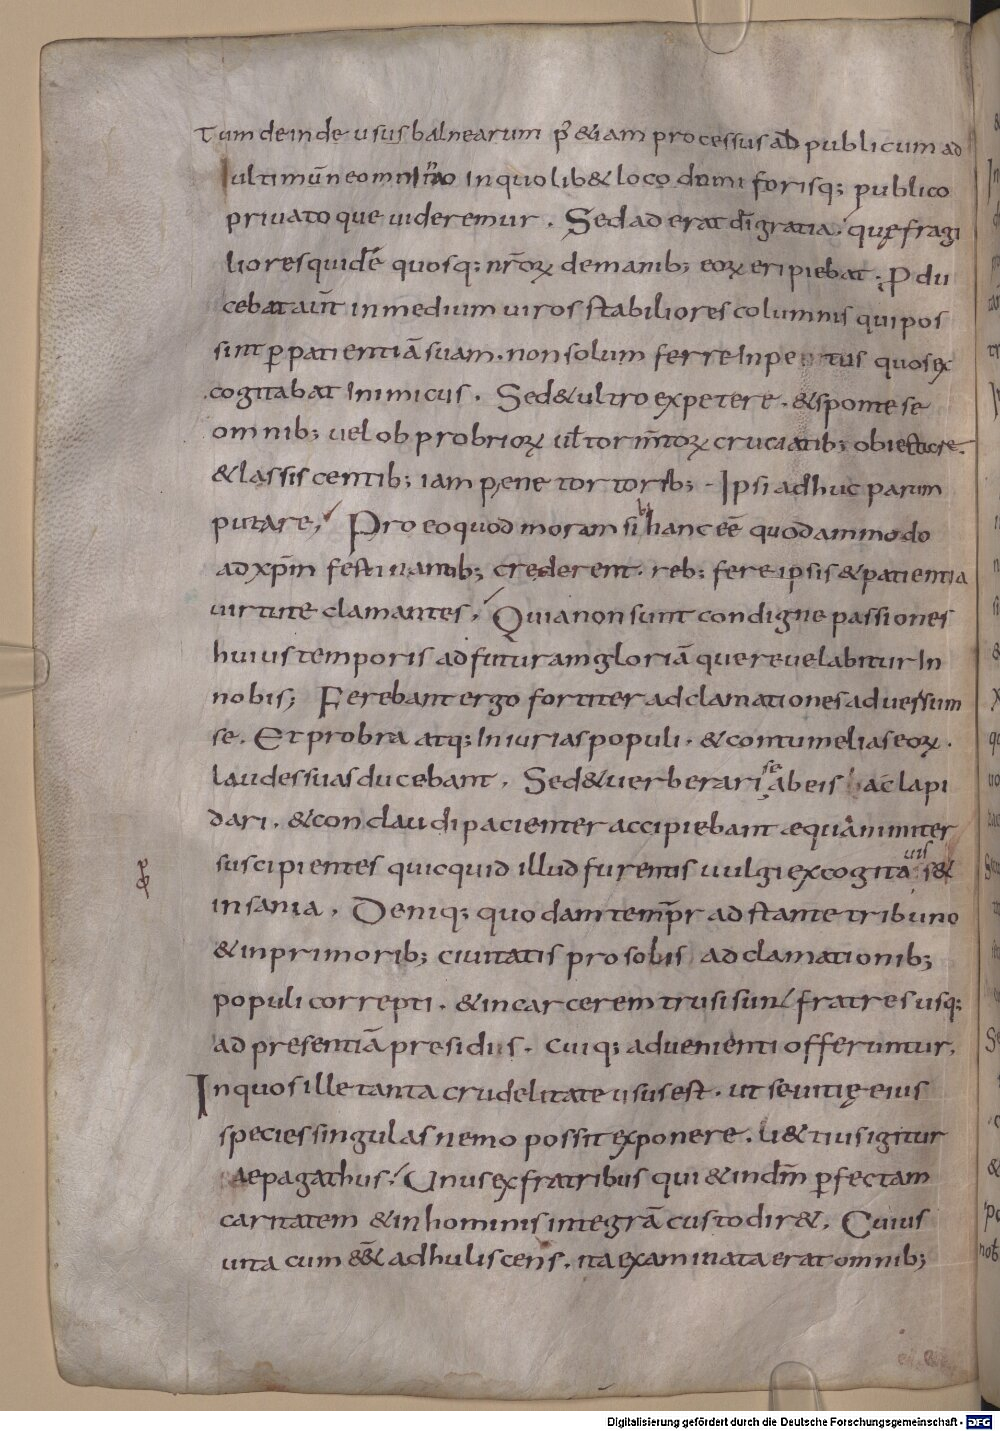 Tum deinde usus balnearum p̄ &iam processus ad publicum ad
ultimū neomnino inquolib&loco domi forisq; publico
priuatoque uideremur. Sedaderat dī gratia. quę fragi
lioresquidē quosq; nr̄orꝝ demanib; eorꝝ eripiebat. Pdu
cebat aūt inmedium uiros stabiliores columnis quipos
sint ꝑpatientiā suam. nonsolum ferre inpetus quosex
cogitabat inimicus. Sed&ultro expetere. &sponte se
omnib; uelobprobriorꝝ ul̄ torm̄torꝝ cruciatib; obiectare.
&lassiscentib; iam pene tortorib; . Ipsi adhuc parum
putare, Pro eo quod moram sibi hanc eē quodammodo
adxp̄m festinantib; crederent. reb; fere ipsis &patientia
uirtute clamantes, Quianonsunt condigne passiones
huiustemporis adfuturamgloriā quereuelabitur In
nobis; Ferebant ergo fortiter adclamationesaduersum
se. Et probra atq; Iniurias populi. &contumelias eorꝝ.
laudessuasducebant. Sed&uerberari se abeis ac lapi
dari. &conclaudi pacienter accipiebant aequanimiter
suscipientes quicquid illud furentis uulgi excogitauiss&
insania. Deniq; quodam temp̄r adstante tribuno
&inprimorib; ciuitatis prosobis adclamationib;
populi correpti. &incarcerem trusi sunt fratres usq;
ad presentiā presidiis. cuiq; aduenienti offeruntur.
Inquos ille tanta crudelitate usus est. ut seuitię eius
species singulas nemo possit exponere. U&tiusigitur
aepagathus. Unus exfratribus qui &indm̄ ꝑfectam
caritatem &inhominis integrā custodir&. Cuius
uita cum ēē& adhuliscens. ita examinata erat omnib;